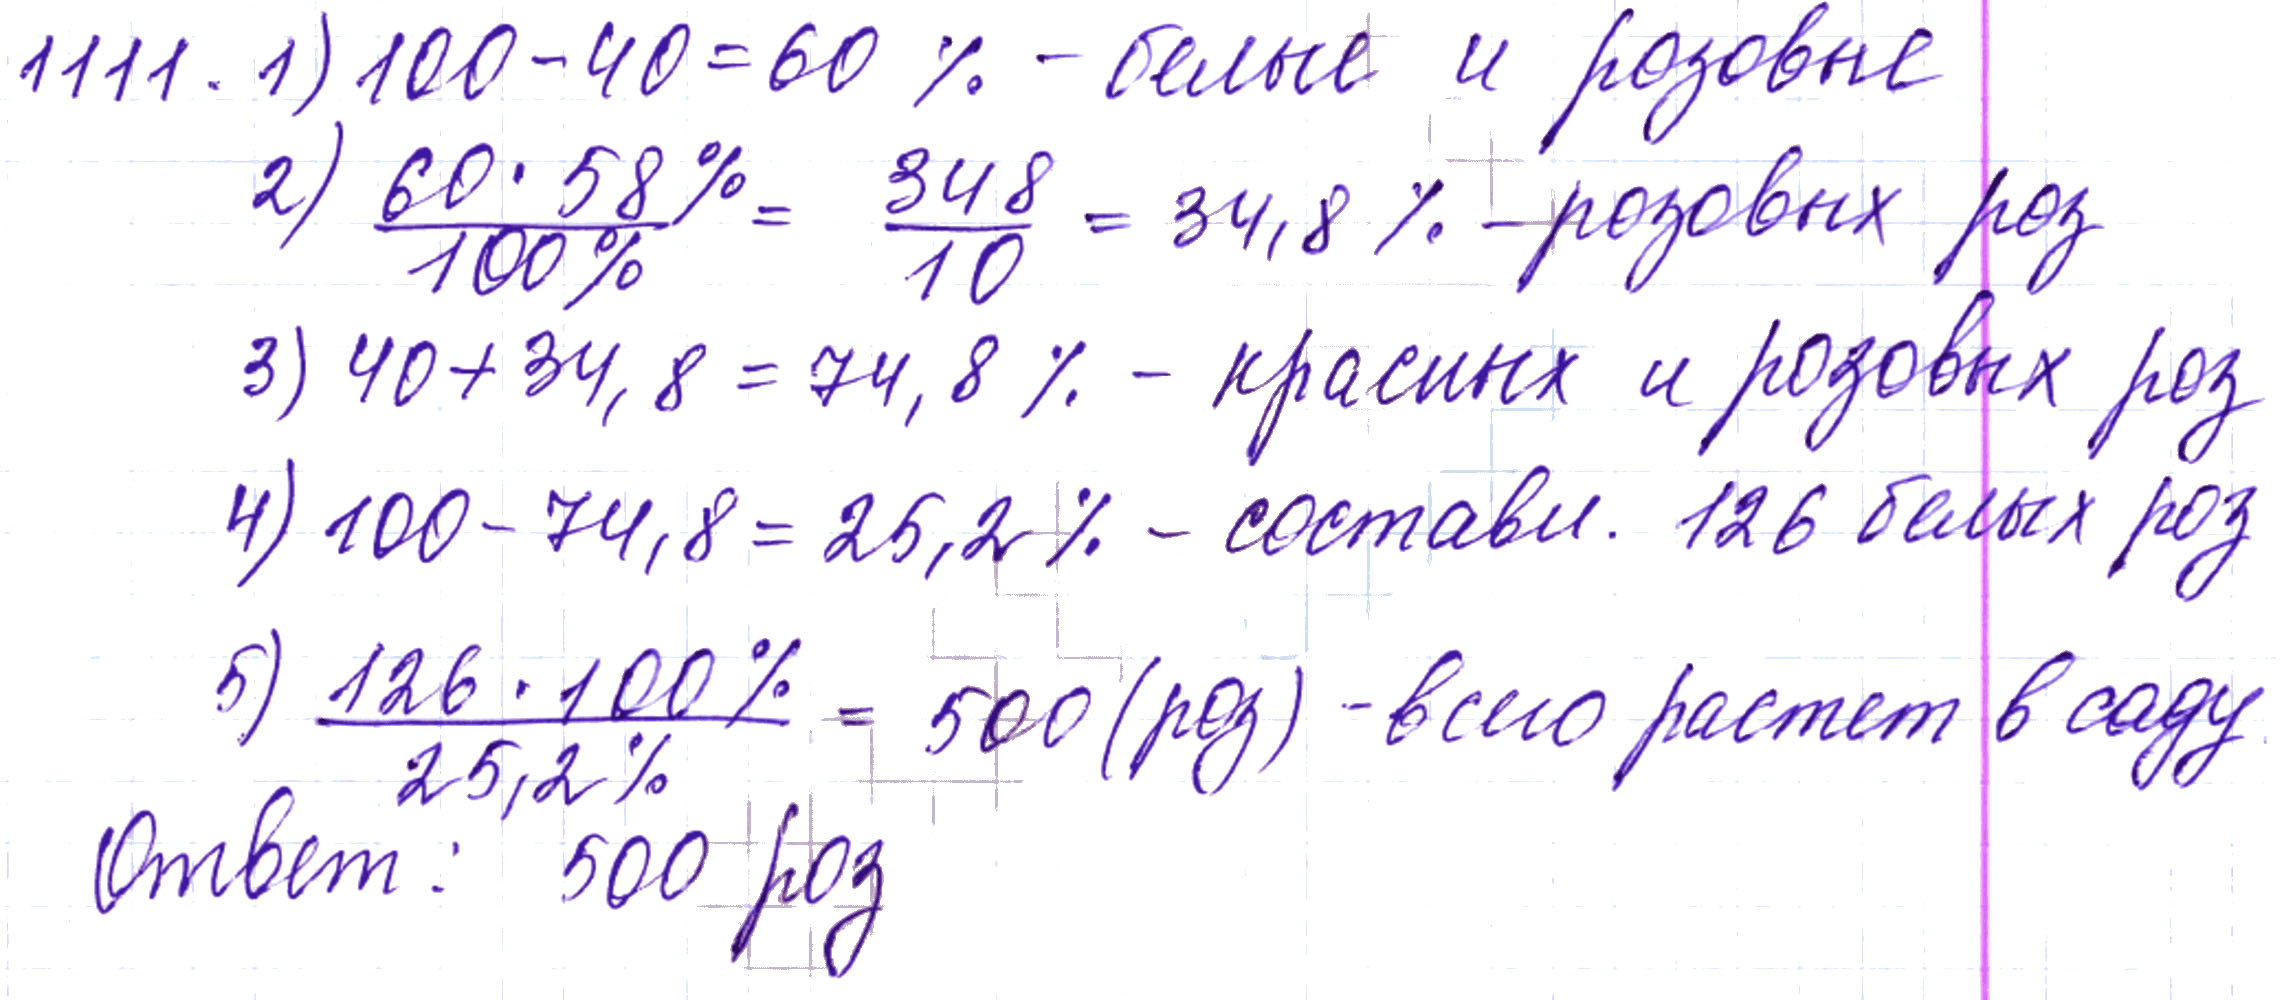 1111. 1) 100 - 40 = 60 % - белые и розовые
2) 60 · 58% / 100% = 348 / 10 = 34,8 % - розовых роз
3) 40 + 34,8 = 74,8 % - красных и розовых роз
4) 100 - 74,8 = 25,2 % - составл. 126 белых роз
5) 126 · 100% / 25,2% = 500 (роз) - всего растет в саду.
Ответ: 500 роз